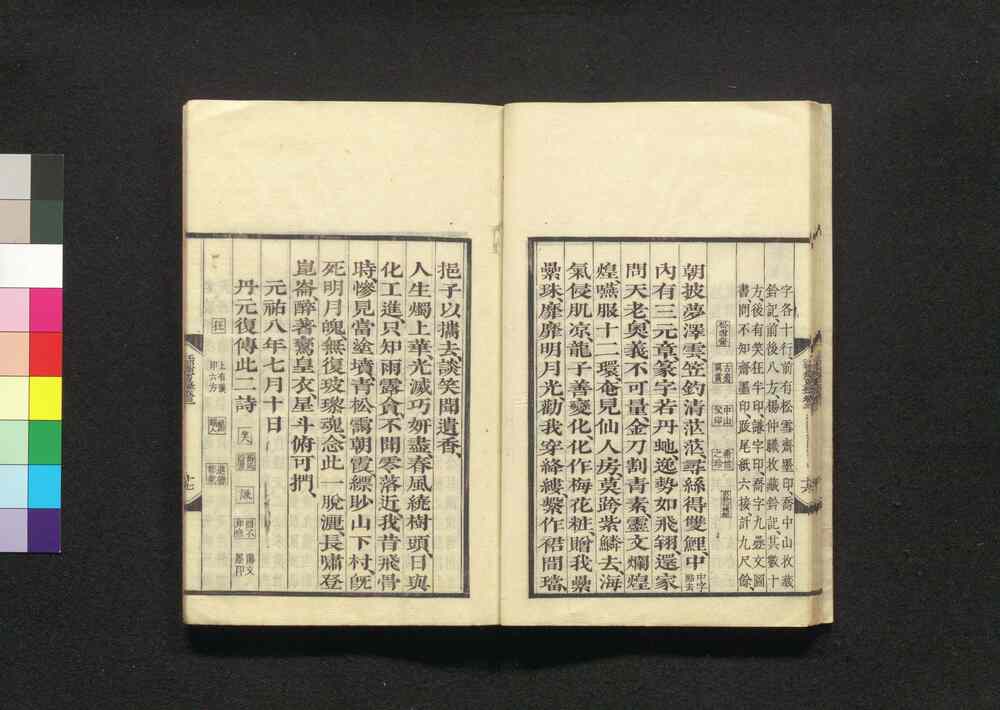 字各十行前有松雪齋墨印喬中山收藏
鈐記前後八方楊仲謙收藏鈐記其數十
方後有笑狂半印謙字印喬字九疊文圖
書間不知齋墨印跋尾紙六接計九尺餘、
朝披夢澤雲、笠釣清茫茫、尋絲得雙鯉、中中字點去
內有三元章、篆字若丹虵、逸勢如飛翔、還家
問天老、奧義不可量、金刀割青素、靈文爛煌
煌、嚥服十二環、奄見仙人房、莫跨紫鱗去、海
氣侵肌凉、龍子善變化、化作梅花粧、贈我纍
纍珠、靡靡明月光、勸我穿絳縷、繫作裙間璫、
挹子以攜去、談笑聞遺香、
人生燭上華、光滅巧妍盡、春風繞樹頭、日與
化工進、只知雨露貪、不聞零落近、我昔飛骨
時、慘見當塗墳、青松靄朝霞、縹眇山下村、旣
死明月魄、無復玻瓈魂、念此一脫灑、長嘯登
崑崙、醉著鸞皇衣、星斗俯可捫、
元祐八年七月十日
丹元復傳此二詩